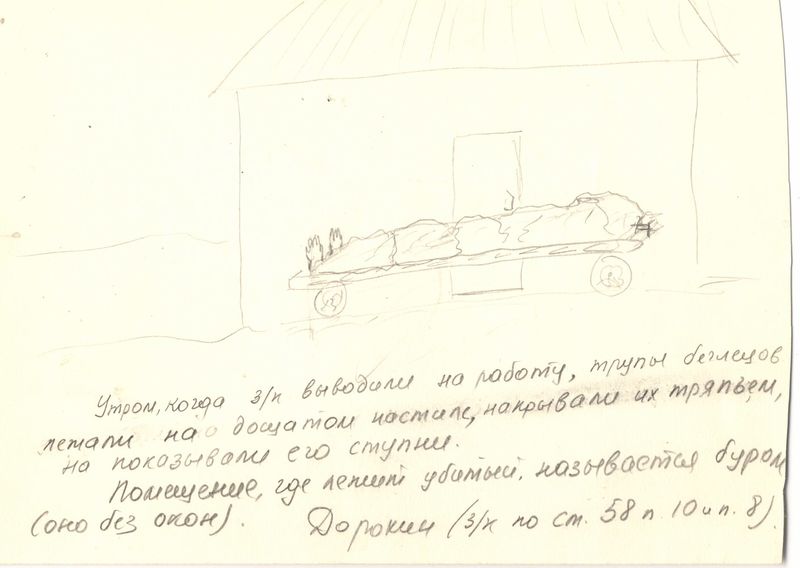 Утром, когда з/к выводили на работу, трупы беглецов
лежали на дощатом настиле, накрывали их тряпьем,
на показывали его ступни.
Помещение, где лежит убитый, называется буром
(оно без окон). Дорокин (з/к по ст. 58 п. 10 и п. 8).